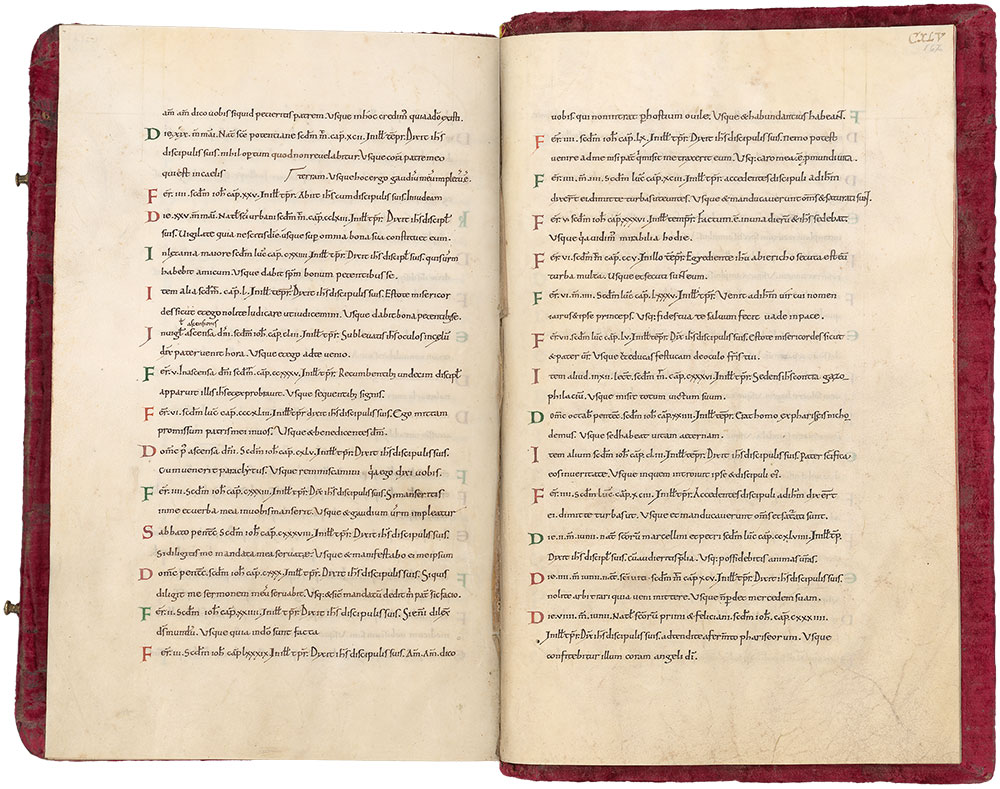 am̄ am̄ dico vobis siquid petieritis patrem. Usque inhoc credim̄ quiaadō existi.
Die. xıx. m̄. mai. Nat̄ sc̄e potentiane scdm̄ m̄. cap̄. xcıı. Inill̄ tp̄r. Dixit ih̄s
discipulis suis. nihil optum quod non revelabitur. Usque corā patre meo
qui est in caelis terram. Usque hoc ergo gaudiū meū impletū ē.
Fer̄. ıııı. Scdm̄ ioh̄ cap̄. xxv. Inill̄ tp̄r. Abiit ih̄s cum discipulis suis Iniudeam
Die. xxv. m̄. mai. Nat̄ sc̄i urbani scdm̄ m̄. cap̄. cclxııı. Inill̄ tp̄r. Dixit ih̄s discipl̄
suis. Uigilate quia nescitis diē. usque sup̄ omnia bona sua constituet eum.
In letania maiore scdm̄ luc̄ cap̄. cxxııı. Inill̄ tp̄r. Dixit ih̄s discipl̄ suis. quis ur̄m
habebit amicum. Usque dabit sp̄m bonum petentibus se.
Item alia scdm̄. cap̄. l. Inill̄ tēpr̄. Dixit ih̄s discipulis suis. Estote misericor
des sicut et ego nolite Iudicare ut iudicemini. Usque dabit bona petentib; se.
In uigl̄ ascensa. dn̄i. scdm̄ ioh̄. cap̄. clııı. Inill̄ tp̄r. Subleuatis ih̄s oculos in cęlū
dix̄ pater uenit hora. Usque et ego ad te uenio.
Fer̄. v. In ascensa. dn̄i scdm̄ m̄. cap̄. ccxxxv. Inill̄ tp̄r. Recumbentib; undecim discipl̄
apparuit illis ih̄s et exprobrauit. Usque sequentib; signis.
Fer̄. vı. scdm̄ luc̄ cap̄. cccxlııı. Inill̄ tp̄r dixit ih̄s discipulis suis. Ego mittam
promissum patris mei in uos. Usque & benedicentes dm̄.
Domc̄ p̄ ascensa dn̄i. Scdm̄ ioh̄ cap̄. cxlv. Inill̄ tp̄r. Dixit ih̄s discipulis suis.
Cum uenerit paraclytus. Usque reminiscamini qa ego dixi uobis.
Fer̄. ıııı. Scdm̄ ioh̄ cap̄. cxxxııı. Inill̄ tp̄r. Dix̄ ih̄s discipulis suis. Si manseritis
in me et uerba mea inuobis manserit. Usque & gaudium ur̄m impleatur
Sabbato pentec̄ scdm̄ ioh̄ cap̄. cxxxvııı. Inill̄ tp̄r. Dixit ih̄s discipulis suis.
Si diligitis me mandata mea seruate. Usque & manifestabo ei me ipsum
Domc̄ pentec̄. scdm̄ ioh̄ cap̄. cxxx. Inill̄ tp̄r. Dixit ih̄s discipulis suis. Siquis
diligit me sermonem meū seruabit. Usq; & sic̄ mandatū dedit m̄ pat̄ sic̄ facio.
Fer̄. ıı. Scdm̄ ioh̄ cap̄. xxvııı. Inill̄ tp̄r. Dixit ih̄s discipulis suis. Sic eni dilex̄
ds̄ mundū. Usque quia in dō sunt facta
Fer̄. ııı. Scdm̄ ioh̄ cap̄ lxxxıx. Inill̄ tp̄r. Dixit ih̄s discipulis suis. Am̄. Am̄. dico
CXLV
162
uobis qui non intrat p̄ hostium ouile. Usque & habundantius habeant.
Fer̄. ıııı. scdm̄ ioh̄ cap̄. lx. Inill̄ tp̄r. Dixit ih̄s discipulis suis. nemo potest
uenire ad me nisi pat̄ q̄ misit me traxerit eum. Usq; caro mea ē. p̄ mundi uita.
Fer̄. ıııı. m̄. ıııı. Scdm̄ luc̄ cap̄. xcııı. Inill̄ tp̄r. accedentes discipuli ad ih̄m
dixert ei dimitte turbas ut euntes. Usque & manducauerunt om̄s & saturati sun̄t.
Fer̄ v. scdm̄ ioh̄ cap̄. xxxvı. Inill̄ temp̄r. Factum. ē. in una dierū & ih̄s sedebat.
Usque q̄a uidim̄ mirabilia hodie.
Fer̄ vı. scdm̄ m̄. cap̄. ccv. Inillo tp̄r. Egrediente ih̄u abiericho secuta est eū
turba multa. Usque et secuti sunt eum.
Fer̄ vı. m̄. ıııı. Scdm̄ luc̄ cap̄. lxxxv. Inill̄ tp̄r. Venit ad ih̄m uir cui nomen
iairus & ipse princeps. Usq; fides tua te saluum fecit. uade in pace.
Fer̄ vıı. scdm̄ luc̄ cap̄. lv. Inill̄ tp̄r. Dix̄ ih̄s discipulis suis. Estote misericordes sicut
& pater ur̄. Usque & educas festucam de oculo fr̄is tui.
Item aliud. m̄. xıı. Lect̄. scdm̄ m̄. cap̄. cxxxvı. Inill̄ tp̄r. Sedens ih̄s contra gazo
philacium. Usque misit totum uictum suum.
Domc̄ octab̄ pentec̄. scdm̄ ioh̄ cap̄. xxıııı. Inill̄ tēpr̄. Erat homo ex phariseis nicho
demus. Usque sed habeat uitam aeternam.
Item alium scdm̄ ioh̄ cap̄. clııı. Inill̄ tēpr̄. Dixit ih̄s discipulis suis. Pater scifica
eos in ueritate. Usque in quem introiuit ipse & discipuli ei'.
Fer̄. ıııı. Scdm̄ Luc̄. cap̄. xcııı. Inill̄ tēpr̄. Accedentes discipuli ad ih̄m dixer̄t
ei. dimitte turbas ut. Usque et manducauerunt om̄s et saturati sunt.
Die. ıı. m̄. iunıı. nat̄ sc̄orū marcellini et petri scdm̄ luc̄ cap̄. ccxlvııı. Inill̄ tp̄r.
Dixit ih̄s discipl̄ suis. cū audieritis p̄lia. Usq; possidebitis animas ur̄as.
Die. ıııı. m̄. iunı. nat̄. sc̄i uiti. scdm̄ m̄ cap̄. xcv. Inill̄ tp̄r. Dixit ih̄s discipulis suis.
nolite arbitrari quia ueni mittere. Usque n̄ p̄det mercedem suam.
Die. vıııı. m̄. iunı. Nat̄ sc̄orū primi & feliciani. scdm̄ ioh̄. cap̄. cxxxıııı.
Inill̄ tp̄r. Dix̄ ih̄s discipulis suis. adtendite a fermto phariseorum. Usque
confitebitur illum coram angeli di.